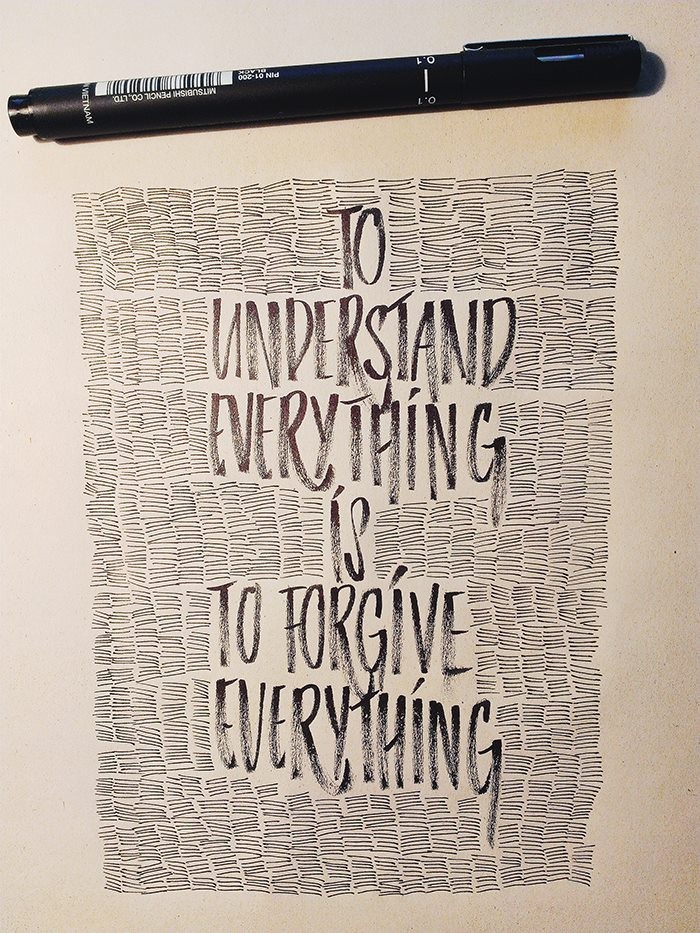 0.1
0.1
PIN 01-200
BLACK
MITSUBISHI PENCIL CO., LTD.
VIETNAM
TO
UNDERSTAND
EVERYTHING
IS
TO FORGIVE
EVERYTHING